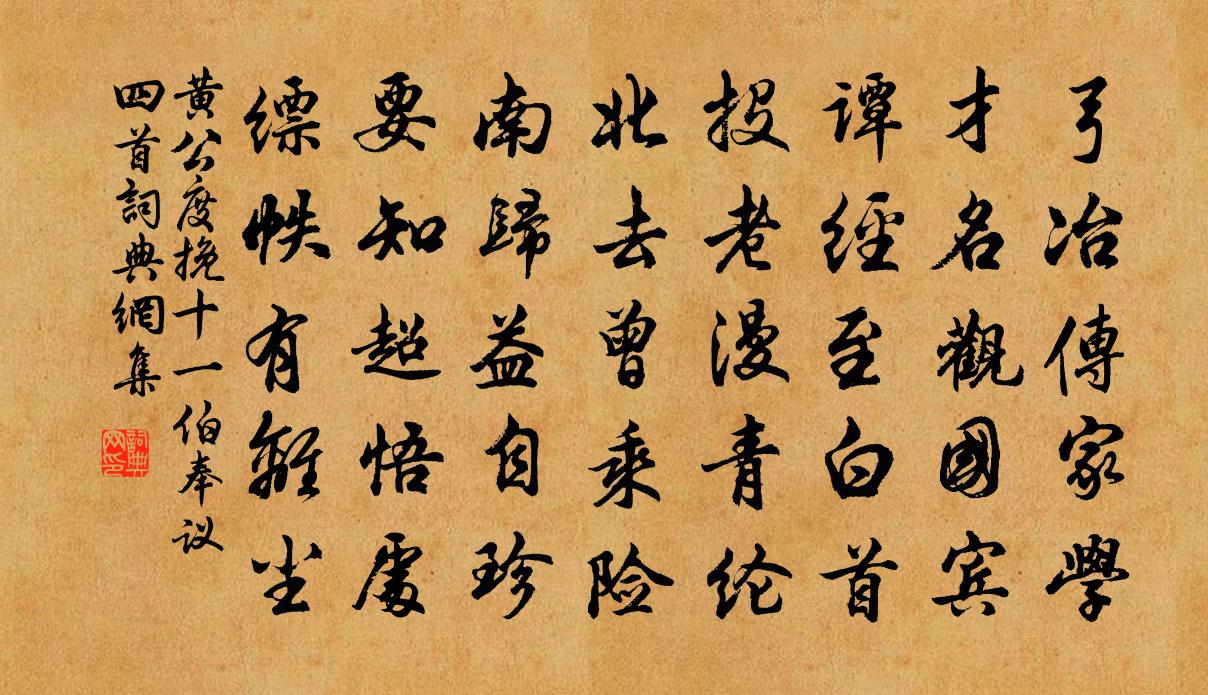 弓冶傳家學
才名觀國宾
譚經至白首
投老漫青纶
北去曾乘险
南歸益自珍
要知超悟處
缥帙有離尘
黄公度挽十一伯奉议
四首詞典網集
詞典网印